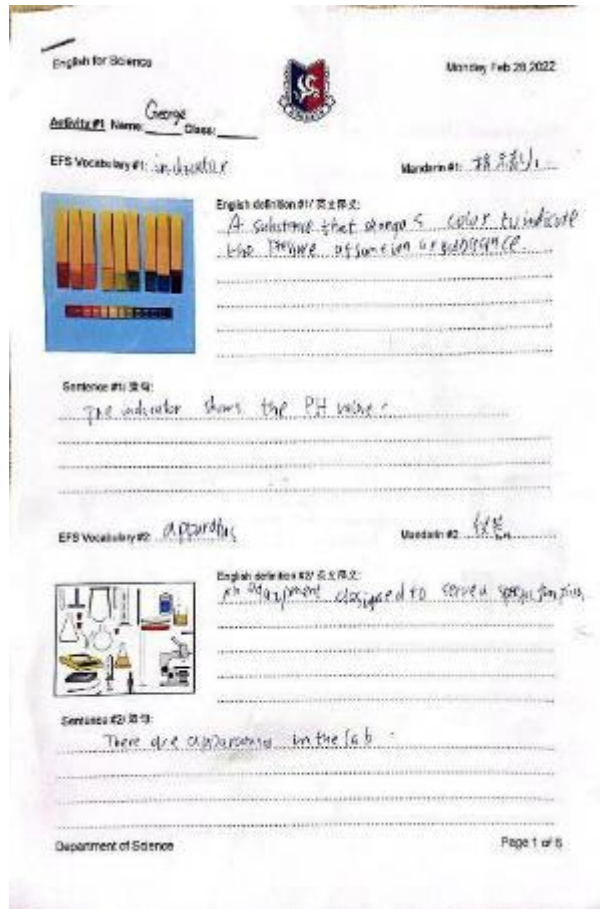 English for Science
Monday Feb 28, 2022
George
Activity #1 Name: Class:
EFS Vocabulary #1: indicator
Mandarin #1:
English definition #1/ 英文释义:
A substance that changes color to indicate
the
Sentence #1/ 造句:
The indicator shows the PH value.
EFS Vocabulary #2: apparatus
Mandarin #2: 仪器
English definition #2/ 英文释义:
equipment designed to serve a specific function
Sentence #2/ 造句:
There are apparatus in the lab.
Department of Science
Page 1 of 5